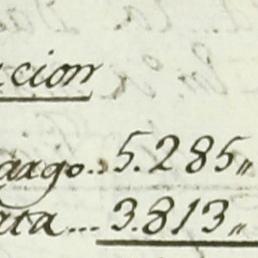 cion
argo... 5.285,,
ata... 3.813,,